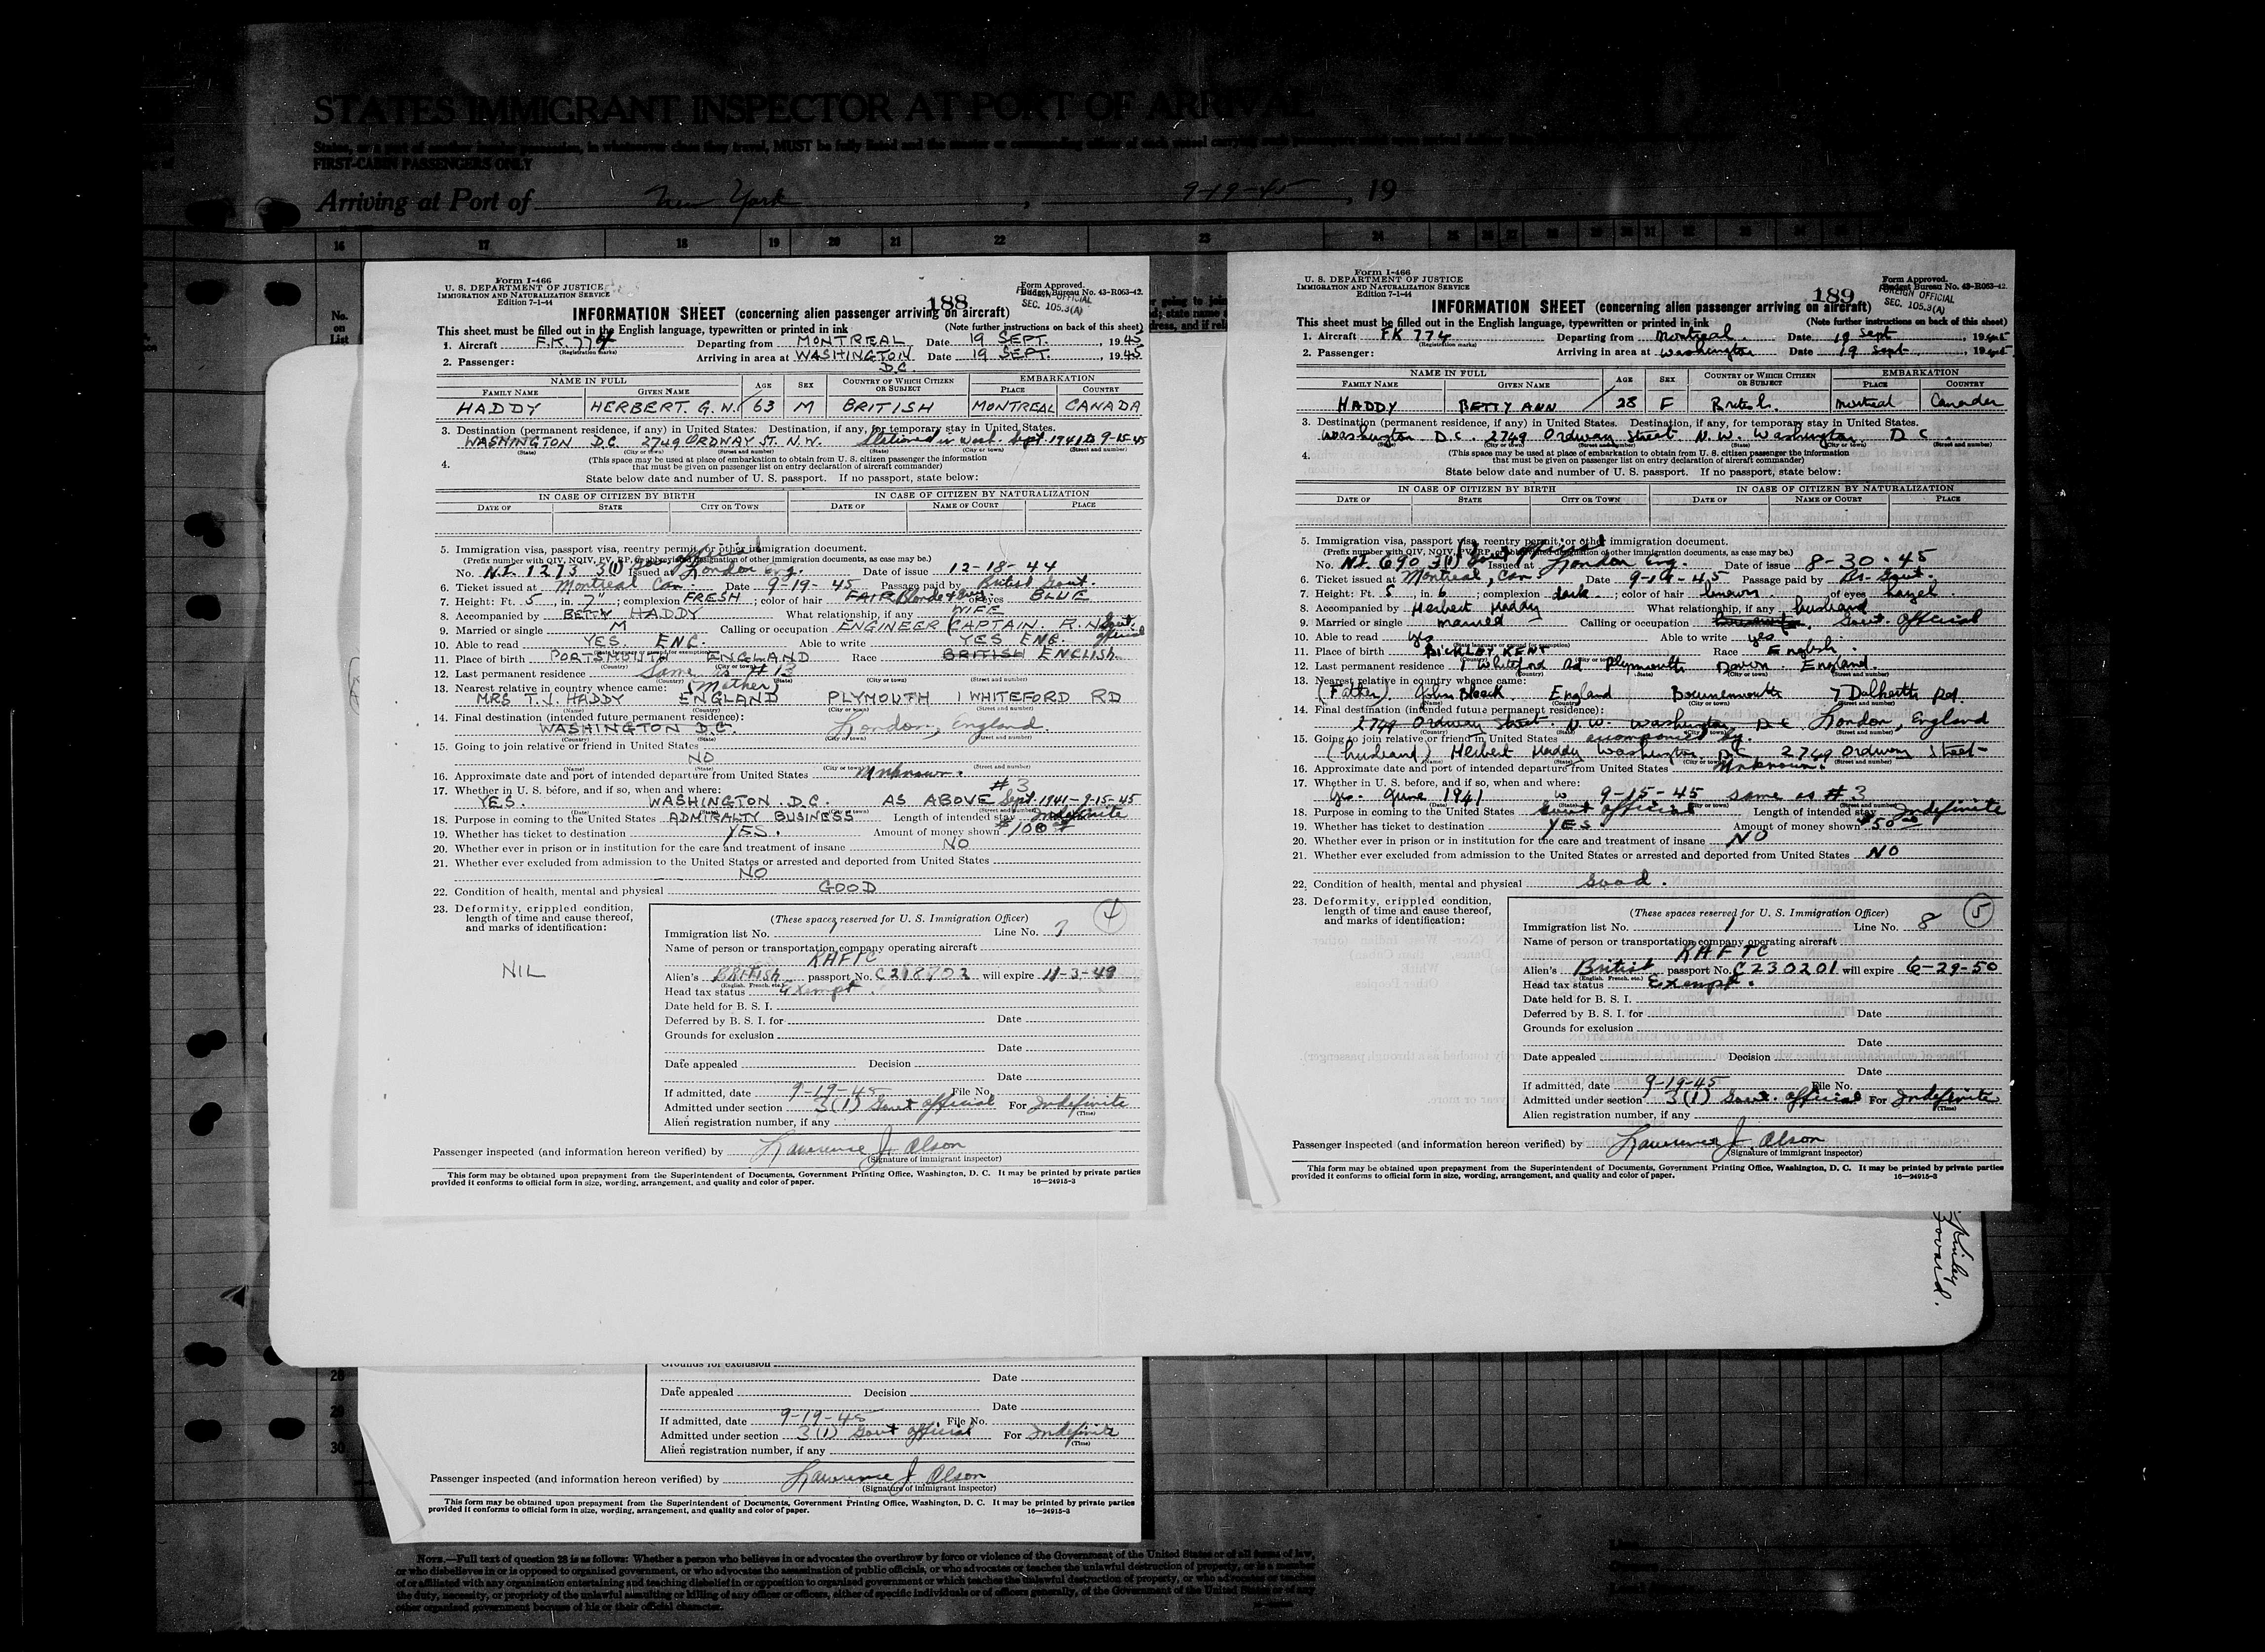 STATES IMMIGRANT INSPECTOR AT PORT OF ARRIVAL
FIRST-CABIN PASSENGERS ONLY
Arriving at Port of New York, 9-19-45, 19
16 17 18 19 20 21 22 23 24
No. on List
Form I-466
U. S. DEPARTMENT OF JUSTICE
IMMIGRATION AND NATURALIZATION SERVICE
Edition 7-1-44
188
Form Approved.
Budget Bureau No. 43-R063-42.
FOREIGN OFFICIAL
SEC. 105.3(A)
INFORMATION SHEET (concerning alien passenger arriving on aircraft)
This sheet must be filled out in the English language, typewritten or printed in ink (Note further instructions on back of this sheet)
1. Aircraft F.K. 774 Departing from MONTREAL Date 19 SEPT., 1945
(Registration marks)
2. Passenger: Arriving in area at WASHINGTON D.C. Date 19 SEPT., 1945
NAME IN FULL AGE SEX COUNTRY OF WHICH CITIZEN OR SUBJECT EMBARKATION
FAMILY NAME GIVEN NAME PLACE COUNTRY
HADDY HERBERT. G. W. 63 M BRITISH MONTREAL CANADA
3. Destination (permanent residence, if any) in United States. Destination, if any, for temporary stay in United States.
WASHINGTON D.C. 2749 ORDWAY ST. N.W. Stationed in Wash. Sept 1941 to 9-15-45
(State) (City or town) (Street and number) (State) (City or town) (Street and number)
4. (This space may be used at place of embarkation to obtain from U. S. citizen passenger the information
that must be given on passenger list on entry declaration of aircraft commander)
State below date and number of U. S. passport. If no passport, state below:
IN CASE OF CITIZEN BY BIRTH IN CASE OF CITIZEN BY NATURALIZATION
DATE OF STATE CITY OR TOWN DATE OF NAME OF COURT PLACE
5. Immigration visa, passport visa, reentry permit, or other immigration document.
(Prefix number with QIV, NQIV, PV, RP, or abbreviated designation of other immigration documents, as case may be.)
No. N.I. 1273 3(1) Gov official Issued at London Eng. Date of issue 12-18-44
6. Ticket issued at Montreal Can. Date 9-19-45 Passage paid by British Govt.
7. Height: Ft. 5, in. 7"; complexion FRESH; color of hair FAIR Blonde & Grey; of eyes BLUE
8. Accompanied by BETTY HADDY What relationship, if any WIFE
9. Married or single M Calling or occupation ENGINEER CAPTAIN. R.N. Govt. official
10. Able to read YES. ENG. Able to write YES ENG.
11. Place of birth PORTSMOUTH ENGLAND Race BRITISH ENGLISH
12. Last permanent residence Same as # 13
13. Nearest relative in country whence came: (Mother)
MRS T.J. HADDY ENGLAND PLYMOUTH 1 WHITEFORD RD
(Name) (Country) (City or town) (Street and number)
14. Final destination (intended future permanent residence):
WASHINGTON D.C. London, England
(Country) (State) (City or town) (Street and number)
15. Going to join relative or friend in United States
NO
(Name) (State) (City or town) (Street and number)
16. Approximate date and port of intended departure from United States Unknown.
17. Whether in U.S. before, and if so, when and where: # 3
YES. WASHINGTON. D.C. AS ABOVE Sept. 1941-9-15-45
18. Purpose in coming to the United States ADMIRALTY BUSINESS Length of intended stay Indefinite
19. Whether has ticket to destination YES. Amount of money shown $100
20. Whether ever in prison or in institution for the care and treatment of insane NO
21. Whether ever excluded from admission to the United States or arrested and deported from United States
NO
22. Condition of health, mental and physical GOOD
23. Deformity, crippled condition,
length of time and cause thereof,
and marks of identification:
NIL
(These spaces reserved for U. S. Immigration Officer) 4
Immigration list No. 1 Line No. 7
Name of person or transportation company operating aircraft
RAFTC
Alien's BRITISH passport No. C218702 will expire 11-3-49
(English, French, etc.)
Head tax status Exempt.
Date held for B. S. I.
Deferred by B. S. I. for Date
Grounds for exclusion
Date
Date appealed Decision
Date
If admitted, date 9-19-45 File No.
Admitted under section 3(1) Govt official For Indefinite
(Time)
Alien registration number, if any
Passenger inspected (and information hereon verified) by Lawrence J Olson
(Signature of immigrant inspector)
This form may be obtained upon prepayment from the Superintendent of Documents, Government Printing Office, Washington, D. C. It may be printed by private parties
provided it conforms to official form in size, wording, arrangement, and quality and color of paper. 16—24915-3
Form I-466
U. S. DEPARTMENT OF JUSTICE
IMMIGRATION AND NATURALIZATION SERVICE
Edition 7-1-44
189
Form Approved.
Budget Bureau No. 43-R063-42.
FOREIGN OFFICIAL
SEC. 105.3(A)
INFORMATION SHEET (concerning alien passenger arriving on aircraft)
This sheet must be filled out in the English language, typewritten or printed in ink (Note further instructions on back of this sheet)
1. Aircraft FK 774 Departing from Montreal. Date 19 Sept, 1945
(Registration marks)
2. Passenger: Arriving in area at Washington Date 19 Sept, 1945
NAME IN FULL AGE SEX COUNTRY OF WHICH CITIZEN OR SUBJECT EMBARKATION
FAMILY NAME GIVEN NAME PLACE COUNTRY
HADDY BETTY ANN 28 F British. Montreal Canada
3. Destination (permanent residence, if any) in United States. Destination, if any, for temporary stay in United States.
Washington D.C. 2749 Ordway Street N.W. Washington D C.
(State) (City or town) (Street and number) (State) (City or town) (Street and number)
4. (This space may be used at place of embarkation to obtain from U. S. citizen passenger the information
that must be given on passenger list on entry declaration of aircraft commander)
State below date and number of U. S. passport. If no passport, state below:
IN CASE OF CITIZEN BY BIRTH IN CASE OF CITIZEN BY NATURALIZATION
DATE OF STATE CITY OR TOWN DATE OF NAME OF COURT PLACE
5. Immigration visa, passport visa, reentry permit, or other immigration document.
(Prefix number with QIV, NQIV, PV, RP, or abbreviated designation of other immigration documents, as case may be.)
No. N.I. 690 3(1) Govt official Issued at London Eng. Date of issue 8-30-45
6. Ticket issued at Montreal, Can. Date 9-19-45 Passage paid by Br. Govt.
7. Height: Ft. 5, in. 6; complexion dark; color of hair brown; of eyes hazel.
8. Accompanied by Herbert Haddy What relationship, if any husband
9. Married or single married Calling or occupation Govt. official
10. Able to read yes Able to write yes
11. Place of birth BICKLEY KENT Race English.
12. Last permanent residence 1 Whiteford Rd Plymouth Devon. England.
13. Nearest relative in country whence came:
(Father) John Bleek England Bournemouth 7 Dalkeith Rd.
14. Final destination (intended future permanent residence):
2749 Ordway Street. N.W. Washington D.C. London, England
15. Going to join relative or friend in United States accompanied by.
(husband) Herbert Haddy Washington DC 2749 Ordway Street
16. Approximate date and port of intended departure from United States Unknown.
17. Whether in U.S. before, and if so, when and where:
Yes. June 1941 to 9-15-45 same as # 3
18. Purpose in coming to the United States Govt official Length of intended stay Indefinite
19. Whether has ticket to destination YES Amount of money shown $50
20. Whether ever in prison or in institution for the care and treatment of insane NO
21. Whether ever excluded from admission to the United States or arrested and deported from United States NO
22. Condition of health, mental and physical Good.
23. Deformity, crippled condition,
length of time and cause thereof,
and marks of identification:
(These spaces reserved for U. S. Immigration Officer) 5
Immigration list No. 1 Line No. 8
Name of person or transportation company operating aircraft
RAFTC
Alien's British passport No. C230201 will expire 6-29-50
(English, French, etc.)
Head tax status Exempt.
Date held for B. S. I.
Deferred by B. S. I. for Date
Grounds for exclusion
Date
Date appealed Decision
Date
If admitted, date 9-19-45 File No.
Admitted under section 3(1) Govt. official For Indefinite
(Time)
Alien registration number, if any
Passenger inspected (and information hereon verified) by Lawrence J Olson
(Signature of immigrant inspector)
This form may be obtained upon prepayment from the Superintendent of Documents, Government Printing Office, Washington, D. C. It may be printed by private parties
provided it conforms to official form in size, wording, arrangement, and quality and color of paper. 16—24915-3
28
29
30
Grounds for exclusion
Date
Date appealed Decision
Date
If admitted, date 9-19-45 File No.
Admitted under section 3(1) Govt official For Indefinite
(Time)
Alien registration number, if any
Passenger inspected (and information hereon verified) by Lawrence J Olson
(Signature of immigrant inspector)
This form may be obtained upon prepayment from the Superintendent of Documents, Government Printing Office, Washington, D. C. It may be printed by private parties
provided it conforms to official form in size, wording, arrangement, and quality and color of paper. 16—24915-3
NOTE.—Full text of question 28 is as follows: Whether a person who believes in or advocates the overthrow by force or violence of the Government of the United States or of all forms of law,
or who disbelieves in or is opposed to organized government, or who advocates the assassination of public officials, or who advocates or teaches the unlawful destruction of property, or is a member
of or affiliated with any organization entertaining and teaching disbelief in or opposition to organized government or which teaches the unlawful destruction of property, or who advocates or teaches
the duty, necessity, or propriety of the unlawful assaulting or killing of any officer or officers, either of specific individuals or of officers generally, of the Government of the United States or of any
other organized government because of his or their official character.